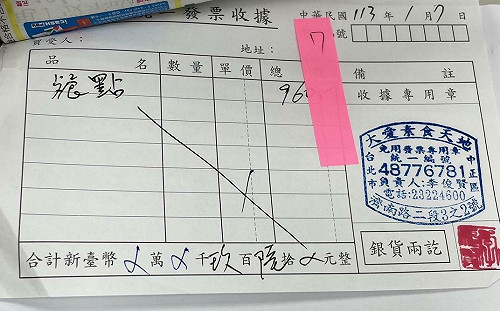 發票收據
中華民國113年1月7日
號
買受人：
地址：
7
品名 數量 單價 總 備註
餐點 960 收據專用章
大愛素食天地
免用發票專用章
統一編號
台北市 48776781 中正區
負責人:李俊賢
電話:23224600
濟南路二段3之2號
合計新臺幣 ㄨ 萬 ㄨ 千 玖 百 陸 拾 ㄨ 元整
銀貨兩訖